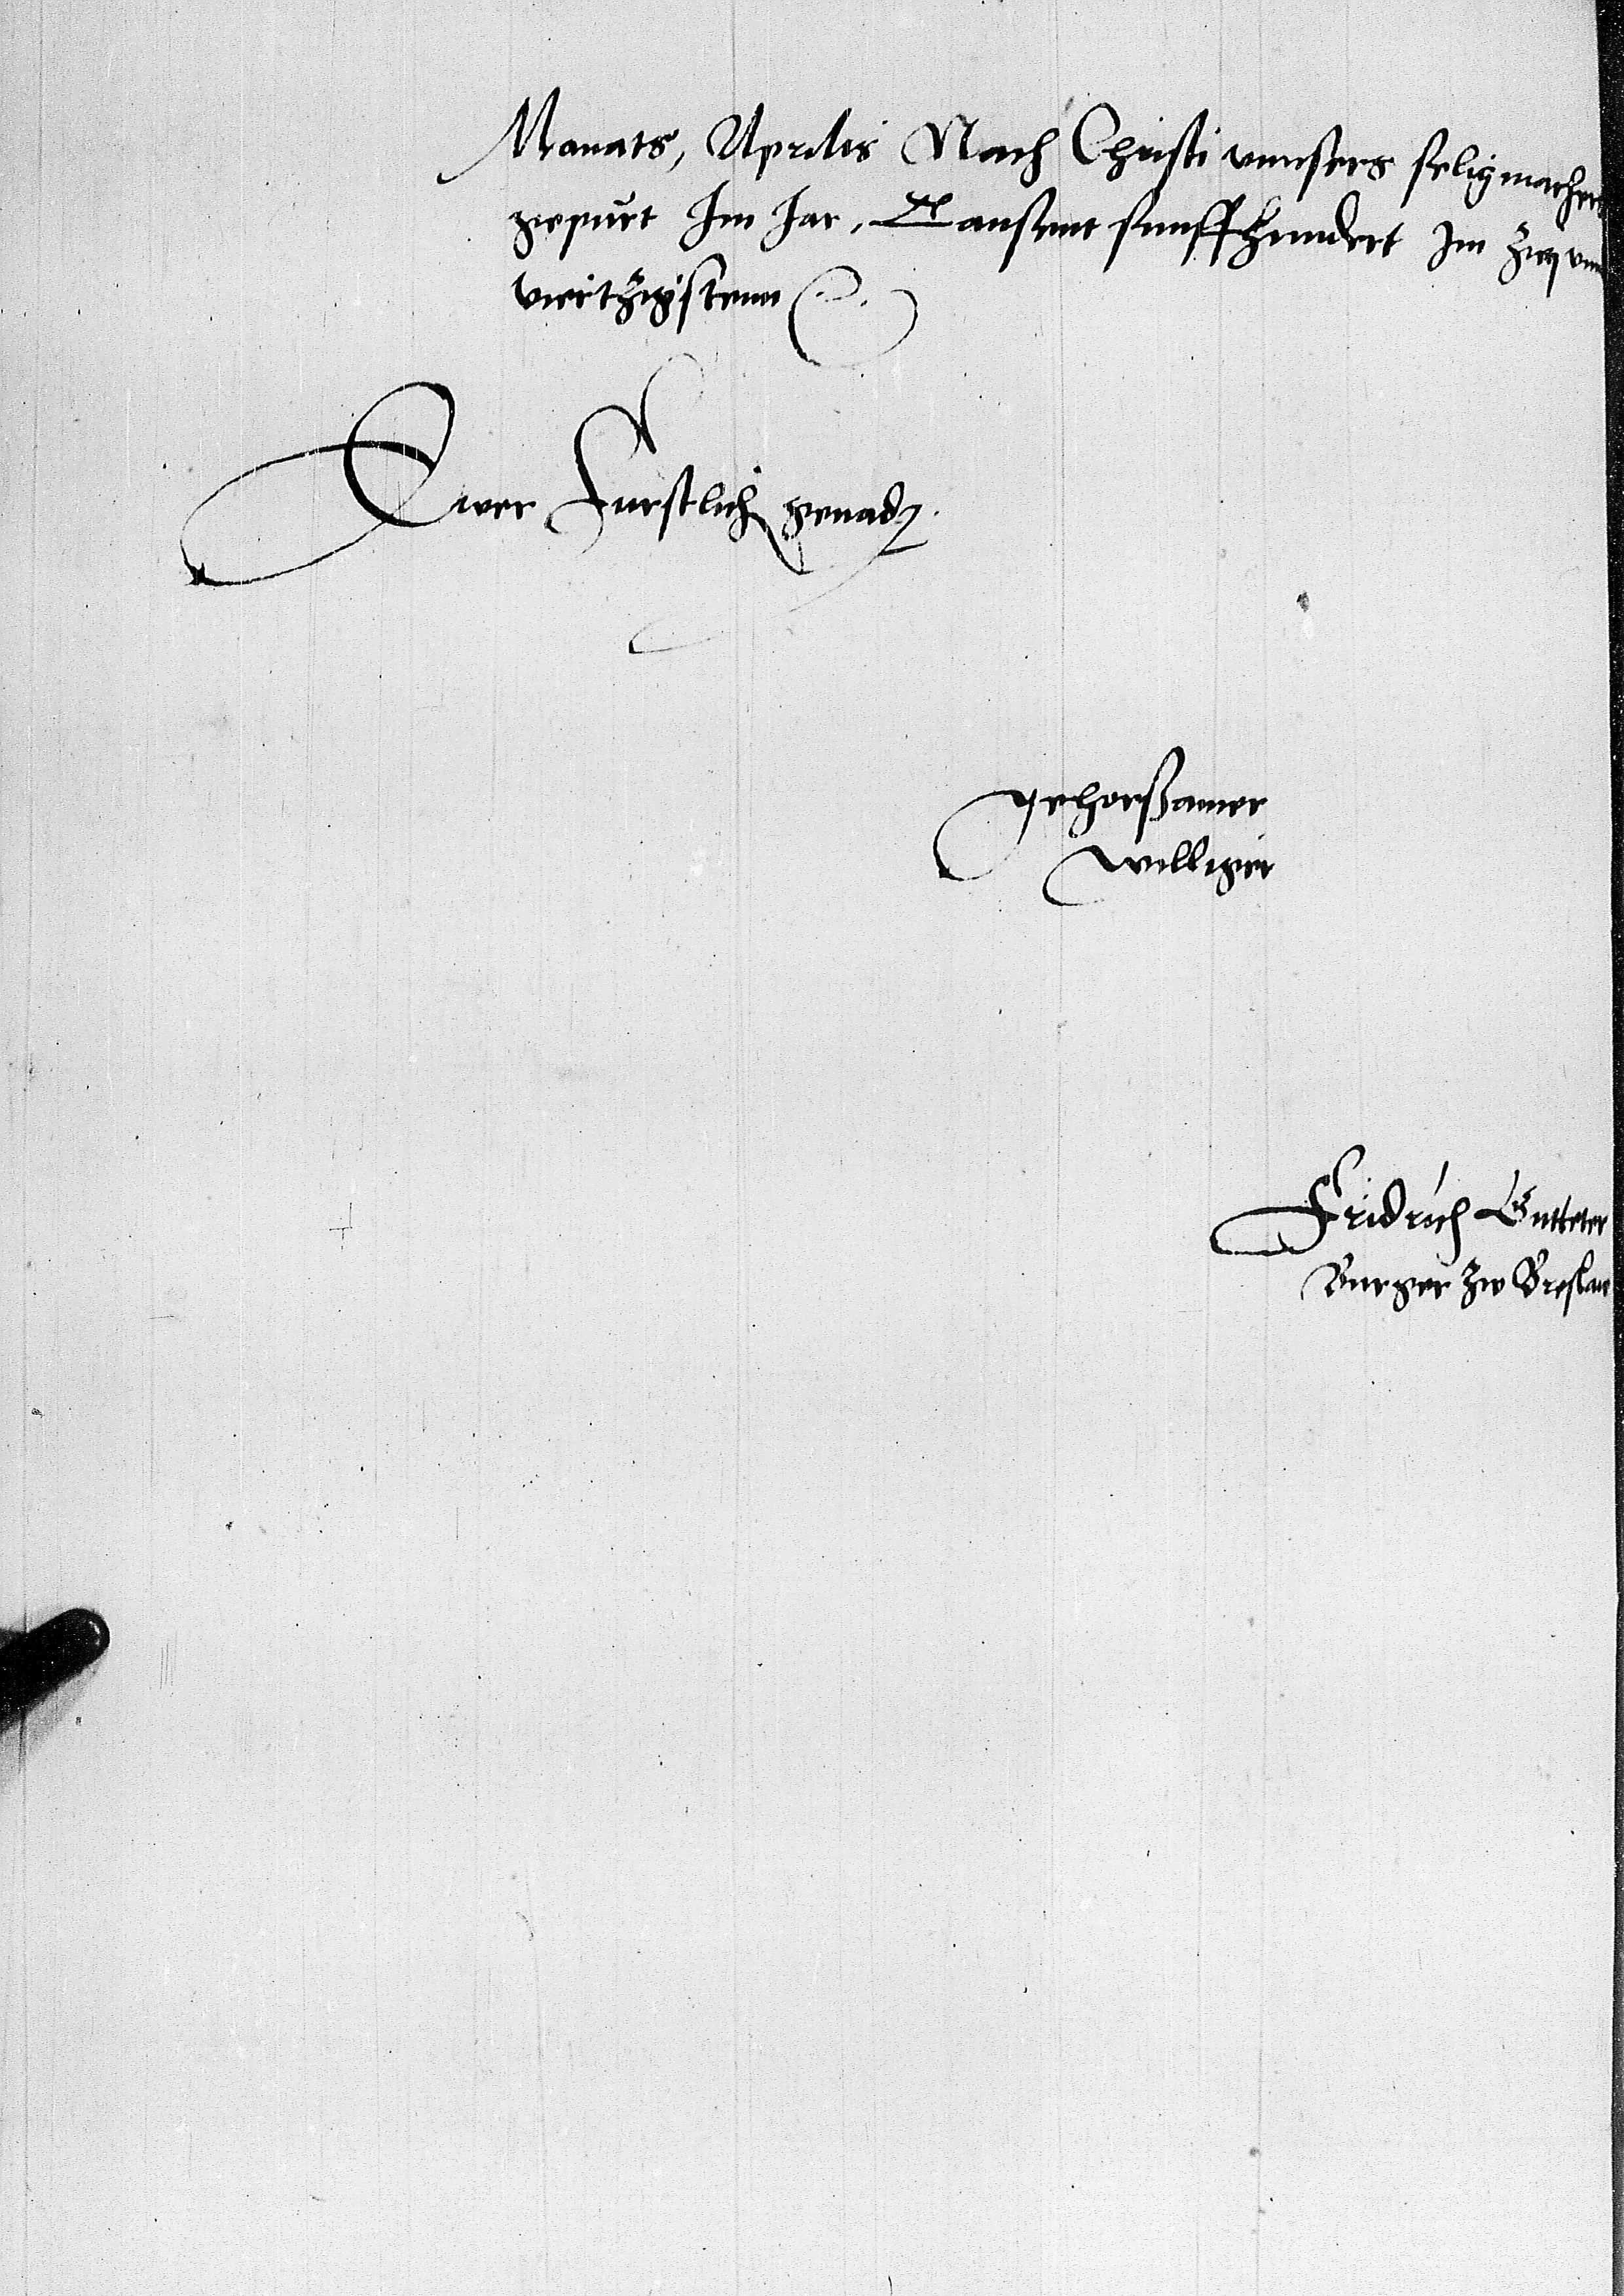 Monats, Aprilis Nach Christi vnnsers seligmachers
gepurt Im Jar, Taussent funffhundert Im zwey vnd
viertzigstenn
Ewer Furstlich genad
gehorßamer
williger
Fridrich Gutteter
Burger zw Breslaw